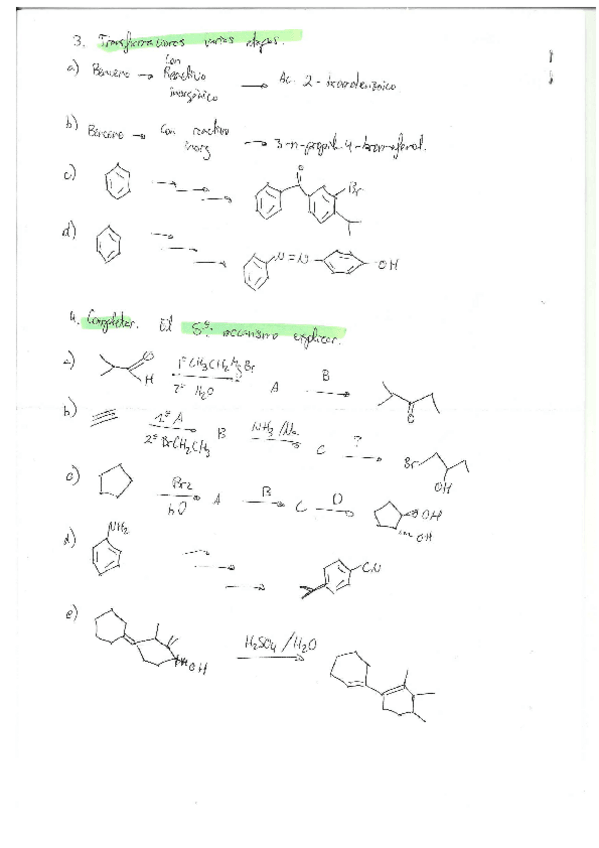 3. Transformaciones varias etapas.
a) Benceno → con Reactivo inorgánico → Ac. 2-bromobenzoico
b) Benceno → con reactivo inorg → 3-n-propil-4-bromofenol.
c) O Br
d) N=N OH
4. Completar. El 5º: mecanismo explicar.
a) O H 1º CH3CH2MgBr 2º H2O A B O
b) 1º A 2º BrCH2CH3 B NH3/Na C ? Br OH
c) Br2 hν A B C D OH OH
d) NH2 CN
e) OH H2SO4/H2O